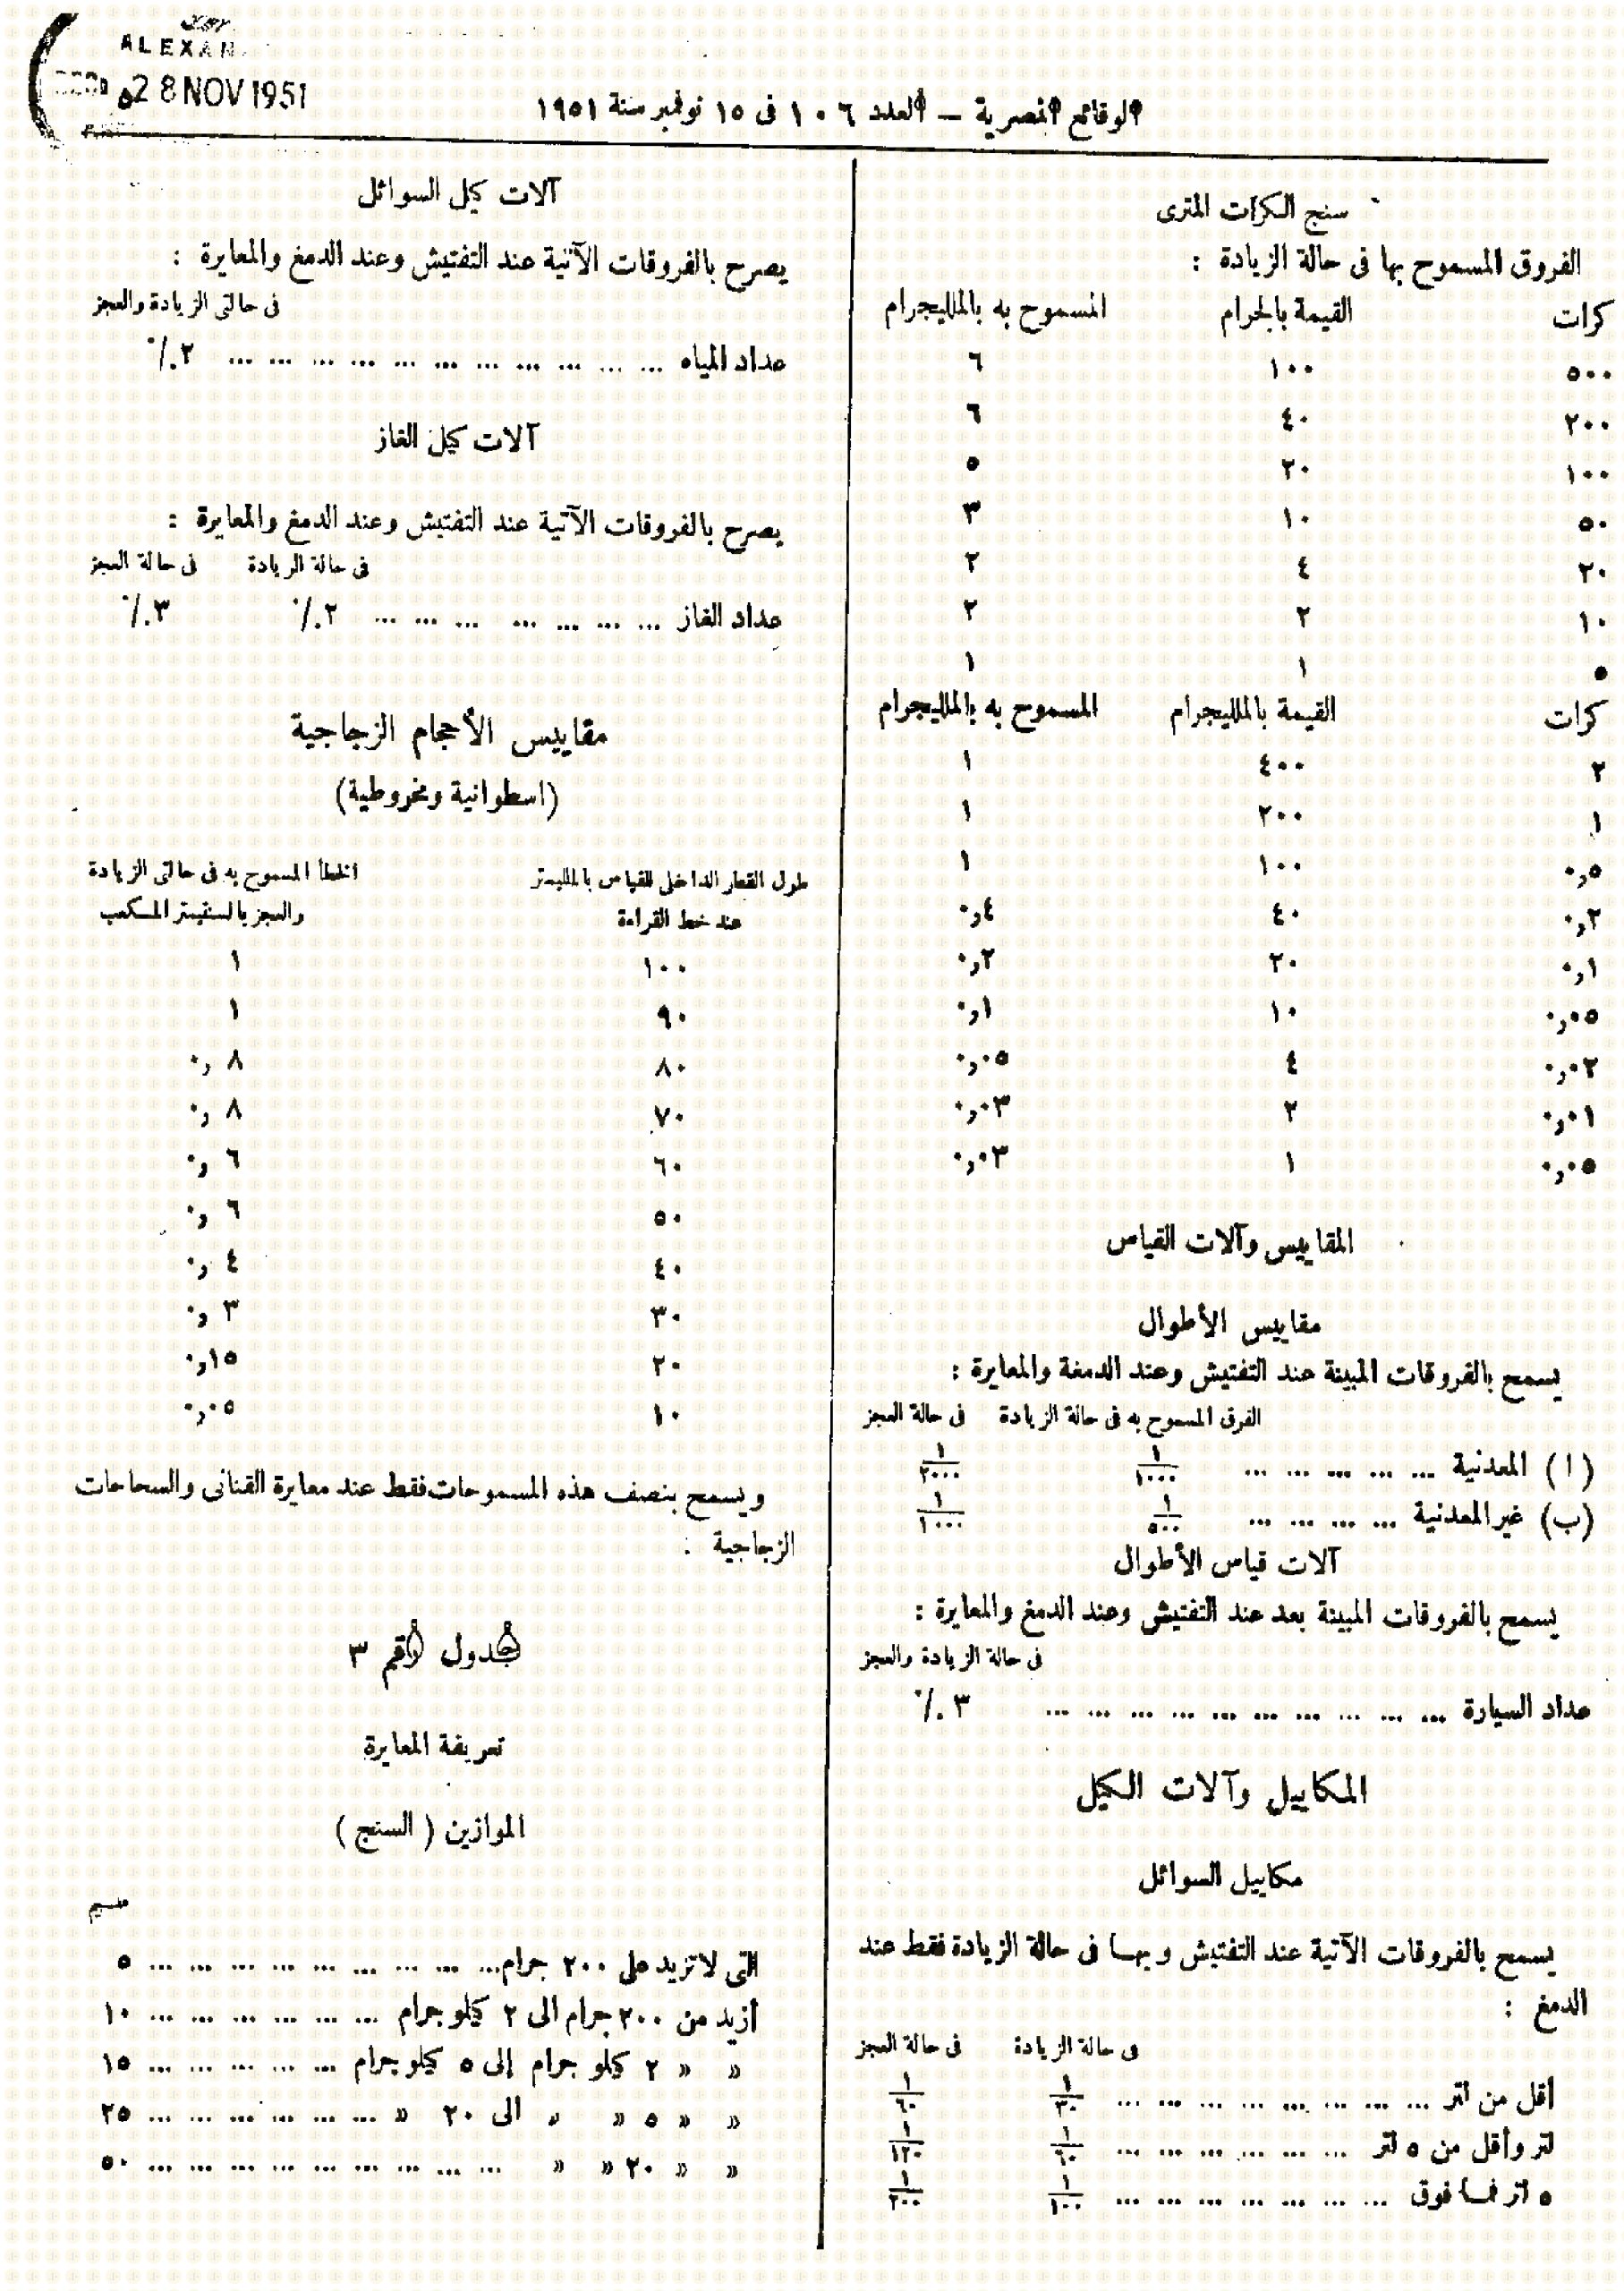 ALEXAN
28 NOV 1951
الوقائع المصرية – العدد ١٠٦ فى ١٥ نوفمبر سنة ١٩٥١
سنج الكرات المترى
الفروق المسموح بها فى حالة الزيادة :
كرات القيمة بالجرام المسموح به بالملليجرام
٥٠٠ ١٠٠ ٦
٢٠٠ ٤٠ ٦
١٠٠ ٢٠ ٥
٥٠ ١٠ ٣
٢٠ ٤ ٢
١٠ ٢ ٢
٥ ١ ١
كرات القيمة بالملليجرام المسموح به بالملليجرام
٢ ٤٠٠ ١
١ ٢٠٠ ١
٠,٥ ١٠٠ ١
٠,٢ ٤٠ ٠,٤
٠,١ ٢٠ ٠,٢
٠,٠٥ ١٠ ٠,١
٠,٠٢ ٤ ٠,٠٥
٠,٠١ ٢ ٠,٠٣
٠,٠٥ ١ ٠,٠٣
المقاييس وآلات القياس
مقاييس الأطوال
يسمح بالفروقات المبينة عند التفتيش وعند الدمغة والمعايرة :
الفرق المسموح به فى حالة الزيادة فى حالة العجز
(ا) المعدنية ... ... ... ... ... ١/١٠٠٠ ١/٢٠٠٠
(ب) غير المعدنية ... ... ... ... ١/٥٠٠ ١/١٠٠٠
آلات قياس الأطوال
يسمح بالفروقات المبينة بعد عند التفتيش وعند الدمغ والمعايرة :
فى حالة الزيادة والعجز
عداد السيارة ... ... ... ... ... ... ... ... ... ... ٣ ٪
المكاييل وآلات الكيل
مكاييل السوائل
يسمح بالفروقات الآتية عند التفتيش وبها فى حالة الزيادة فقط عند
الدمغ :
فى حالة الزيادة فى حالة العجز
أقل من لتر ... ... ... ... ... ... ... ... ١/٣٠ ١/٦٠
لتر وأقل من ٥ لتر ... ... ... ... ... ... ١/٦٠ ١/١٢٠
٥ لتر فما فوق ... ... ... ... ... ... ... ١/١٠٠ ١/٢٠٠
آلات كيل السوائل
يصرح بالفروقات الآتية عند التفتيش وعند الدمغ والمعايرة :
فى حالتى الزيادة والعجز
عداد المياه ... ... ... ... ... ... ... ... ... ... ... ٢٪
آلات كيل الغاز
يصرح بالفروقات الآتية عند التفتيش وعند الدمغ والمعايرة :
فى حالة الزيادة فى حالة العجز
عداد الغاز ... ... ... ... ... ... ... ٢٪ ٣٪
مقاييس الأحجام الزجاجية
(اسطوانية ومخروطية)
طول القطار الداخلى للقياس بالملليمتر الخطأ المسموح به فى حالتى الزيادة
عند خط القراءة والعجز بالسنتيمتر المكعب
١٠٠ ١
٩٠ ١
٨٠ ٠,٨
٧٠ ٠,٨
٦٠ ٠,٦
٥٠ ٠,٦
٤٠ ٠,٤
٣٠ ٠,٣
٢٠ ٠,١٥
١٠ ٠,٠٥
ويسمح بنصف هذه المسموحات فقط عند معايرة القنانى والسحاحات
الزجاجية :
جدول رقم ٣
تعريفة المعايرة
الموازين ( السنج )
مليم
التى لا تزيد على ٢٠٠ جرام ... ... ... ... ... ... ... ... ... ٥
أزيد من ٢٠٠ جرام الى ٢ كيلو جرام ... ... ... ... ... ... ١٠
» » ٢ كيلو جرام إلى ٥ كيلو جرام ... ... ... ... ... ١٥
» » ٥ » » الى ٢٠ » ... ... ... ... ... ... ٢٥
» » ٢٠ » » ... ... ... ... ... ... ... ... ... ٥٠